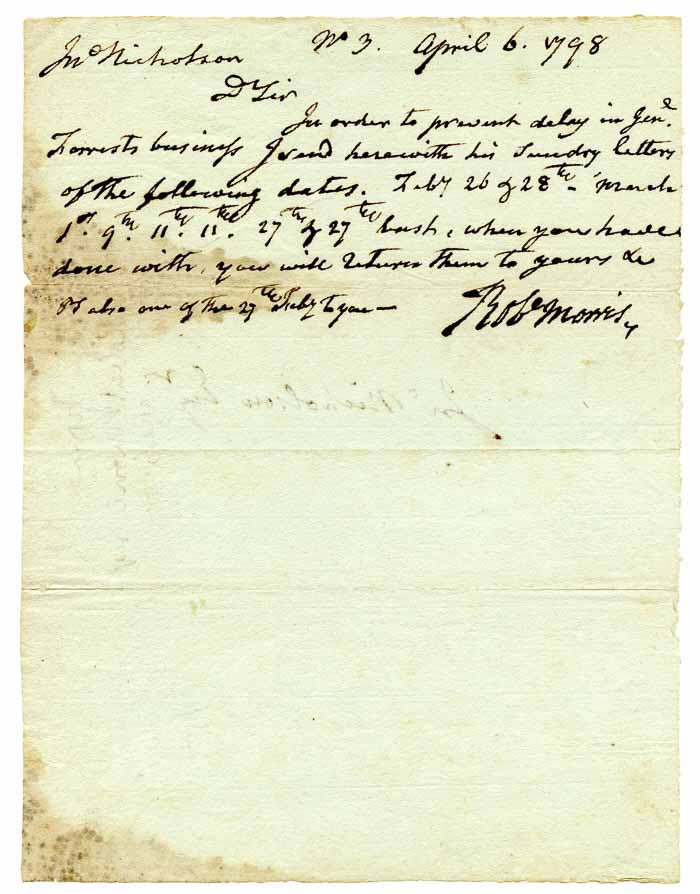 Jnº Nicholson Nº 3. April 6. 1798
Dr Sir
In order to prevent delay in Genl.
Forrests business I send herewith his Sundry letters
of the following dates. Feby 26 & 28th – March
1st. 9th. 11th. 11th. 27th & 27th last, when you have
done with, you will return them to yours &c
PS also one of the 27th Feby to you —
Robt Morris
Jnº Nicholson Esqr